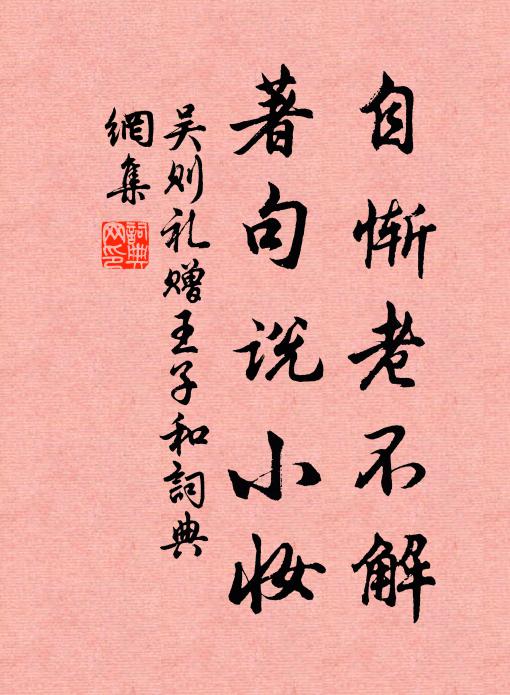 自惭老不解
著句说小妆
吴则礼赠王子和詞典
網集
詞典
网印